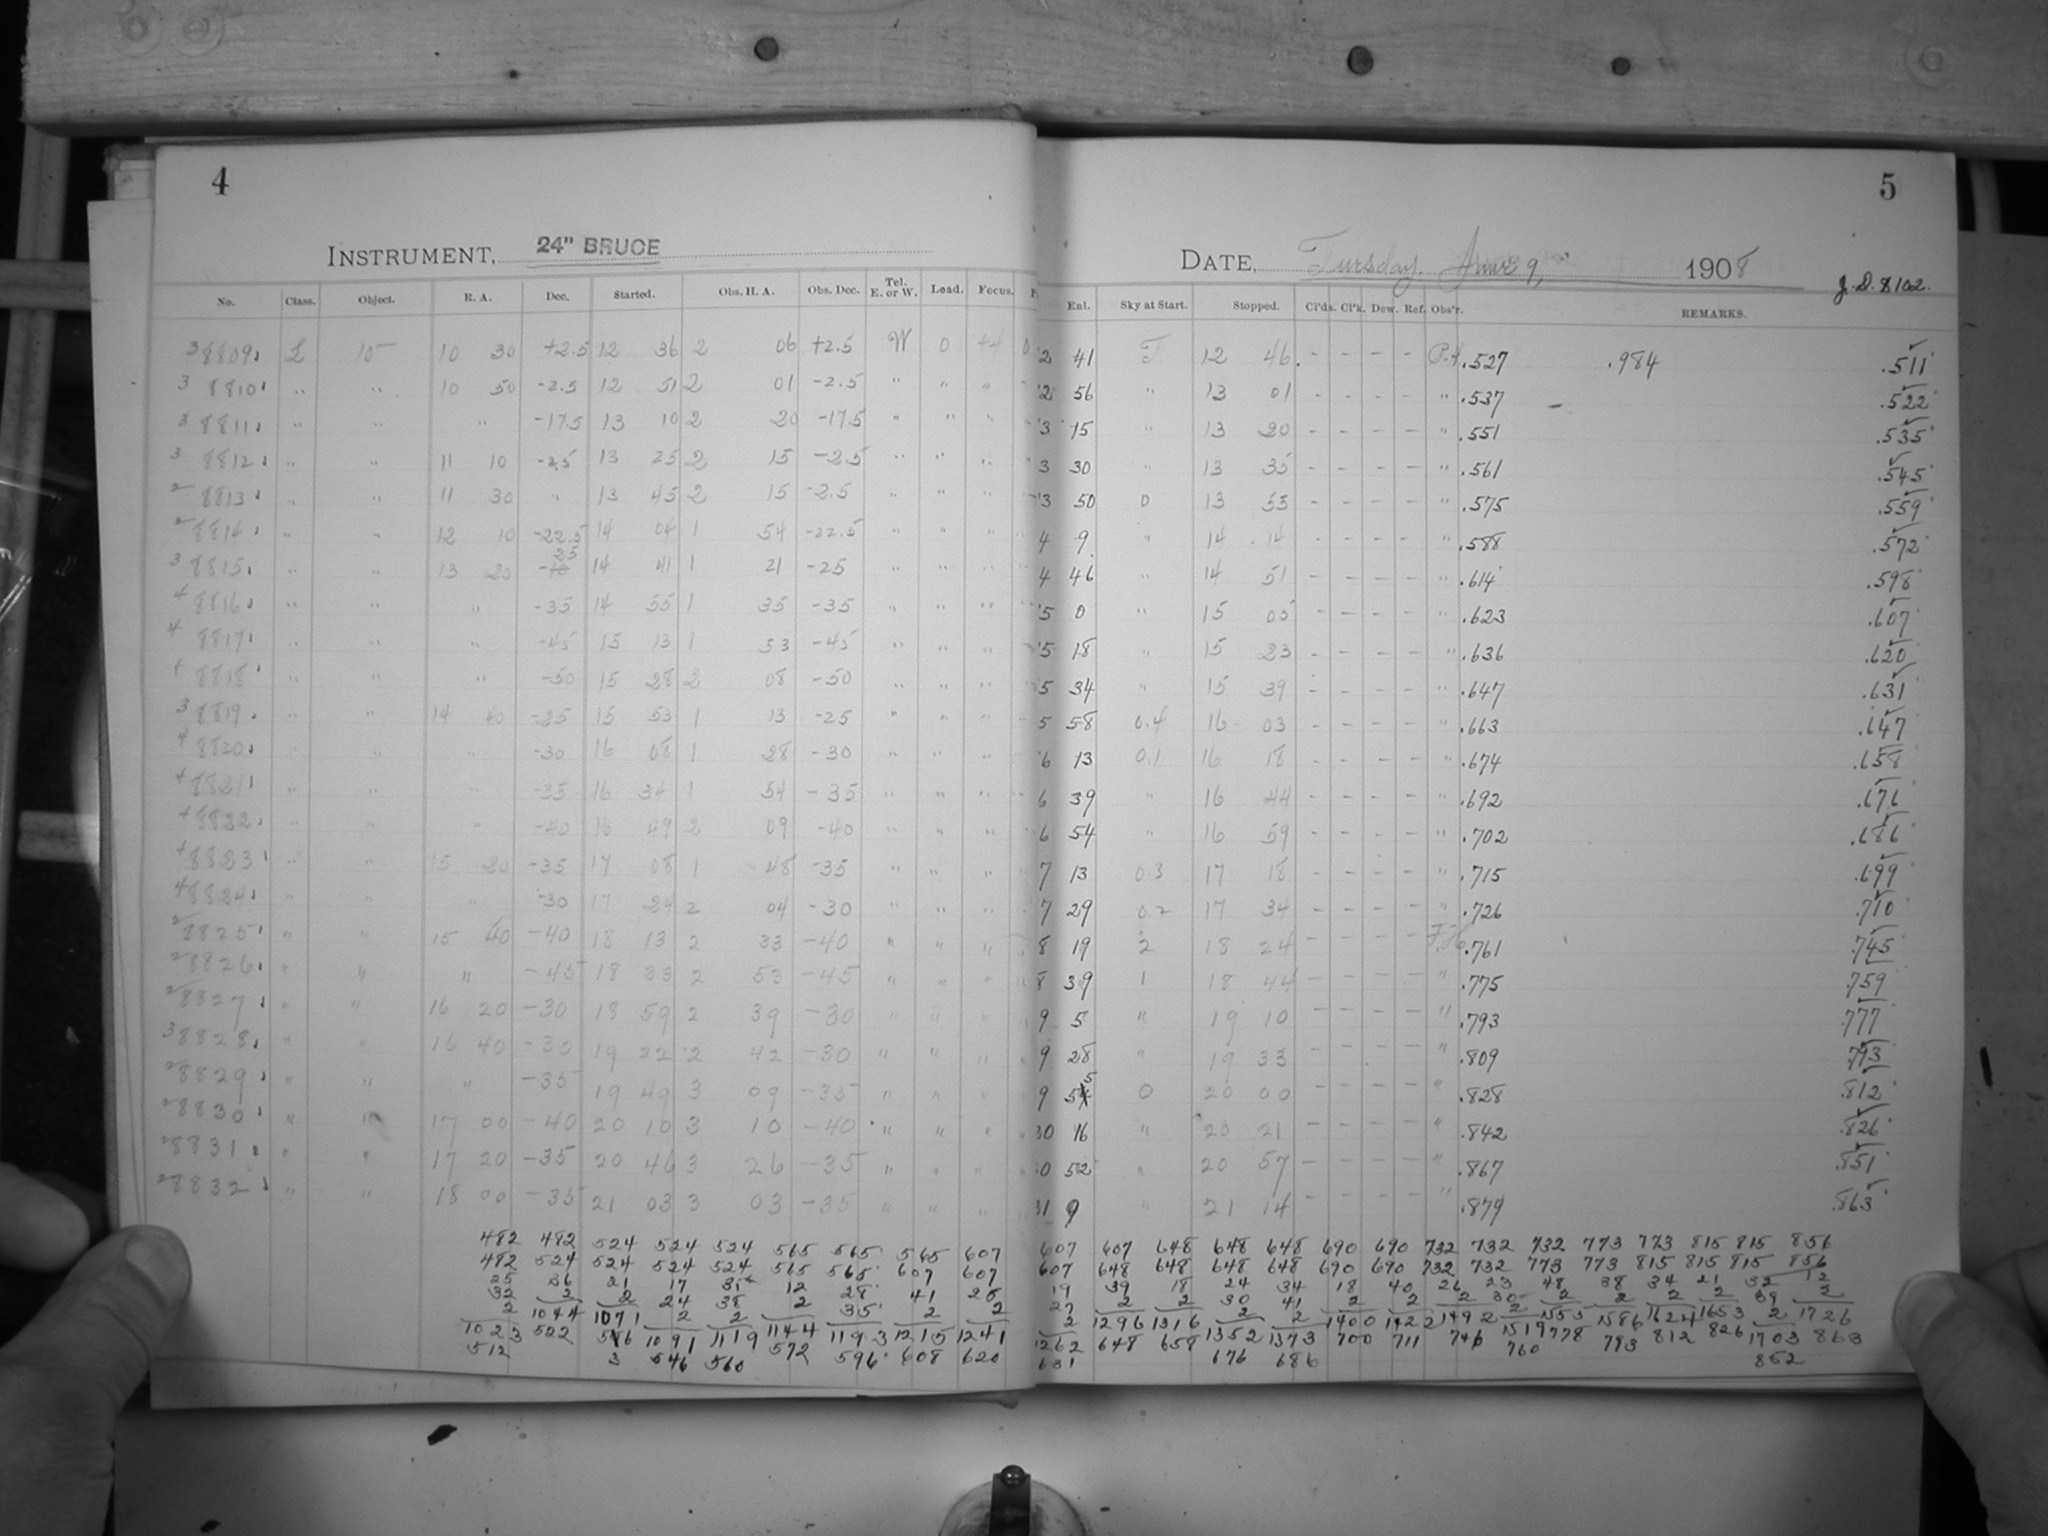 4
5
INSTRUMENT, 24" BRUCE
DATE, Tuesday, June 9, 1908
J.D. 8102.
No. Class. Object. R. A. Dec. Started. Obs. H. A. Obs. Dec. Tel. E. or W. Load. Focus. Enl. Sky at Start. Stopped. Cl'ds. Cl'k. Dew. Ref. Obs'r. REMARKS.
3 8809 L 10 10 30 +2.5 12 36 2 06 +2.5 W 0 +4 0 2 41 12 46 - - - - .527 .984 .511
3 8810 " " 10 50 -2.5 12 51 2 01 -2.5 " " " 2 56 " 13 01 - - - - " .537 .522
3 8811 " " " -17.5 13 10 2 20 -17.5 " " " 3 15 " 13 20 - - - - " .551 .535
3 8812 " " 11 10 -2.5 13 25 2 15 -2.5 " " " 3 30 " 13 35 - - - - " .561 .545
2 8813 " " 11 30 " 13 45 2 15 -2.5 " " " 3 50 0 13 55 - - - - " .575 .559
2 8814 " " 12 10 -22.5 14 04 1 54 -22.5 " " " 4 9 " 14 14 - - - - " .588 .572
3 8815 " " 13 20 25 14 41 1 21 -25 " " " 4 46 " 14 51 - - - - " .614 .598
4 8816 " " " -35 14 55 1 35 -35 " " " 5 0 " 15 05 - - - - " .623 .607
4 8817 " " " -45 15 13 1 53 -45 " " " 5 18 " 15 23 - - - - " .636 .620
4 8818 " " " -50 15 28 2 08 -50 " " " 5 34 " 15 39 - - - - " .647 .631
3 8819 " " 14 40 -25 15 53 1 13 -25 " " " 5 58 0.4 16 03 - - - - " .663 .647
4 8820 " " " -30 16 08 1 28 -30 " " " 6 13 0.1 16 18 - - - - " .674 .658
4 8821 " " " -35 16 34 1 54 -35 " " " 6 39 " 16 44 - - - - " .692 .676
4 8822 " " " -40 16 49 2 09 -40 " " " 6 54 " 16 59 - - - - " .702 .686
4 8823 " " 15 20 -35 17 08 1 48 -35 " " " 7 13 0.3 17 18 - - - - " .715 .699
4 8824 " " " -30 17 24 2 04 -30 " " " 7 29 0.2 17 34 - - - - " .726 .710
2 8825 " " 15 40 -40 18 13 2 33 -40 " " " 8 19 2 18 24 - - - - .761 .745
2 8826 " " " -45 18 33 2 53 -45 " " " 8 39 1 18 44 - - - - " .775 .759
2 8827 " " 16 20 -30 18 59 2 39 -30 " " " 9 5 " 19 10 - - - - " .793 .777
3 8828 " " 16 40 -30 19 22 2 42 -30 " " " 9 28 " 19 33 - - - - " .809 .793
2 8829 " " " -35 19 49 3 09 -35 " " " 9 55 0 20 00 - - - - " .828 .812
2 8830 " " 17 00 -40 20 10 3 10 -40 " " " 30 16 " 20 21 - - - - " .842 .826
2 8831 " " 17 20 -35 20 46 3 26 -35 " " " 30 52 " 20 57 - - - - " .867 .851
2 8832 " " 18 00 -35 21 03 3 03 -35 " " " 31 9 " 21 14 - - - - " .879 .863
482 482 524 524 524 565 565 565 607 607 607 648 648 648 690 690 732 732 732 773 773 815 815 856
482 524 524 524 524 565 565 607 607 607 648 648 648 648 690 690 732 732 773 773 815 815 815 856
25 36 21 17 35 12 28 41 25 19 39 18 24 34 18 40 26 23 48 38 34 21 32 12
32 2 2 24 38 2 35 2 2 27 2 2 30 41 2 2 2 30 2 2 2 2 39 2
2 1044 1071 2 2 1144 2 1215 1241 2 1296 1316 2 2 1400 1422 1492 2 1555 1586 1624 1653 2 1726
1023 522 1091 1119 572 1193 608 620 1262 648 658 1352 1373 700 711 746 1519 778 793 812 826 1703 863
512 546 560 596 631 676 686 760 852